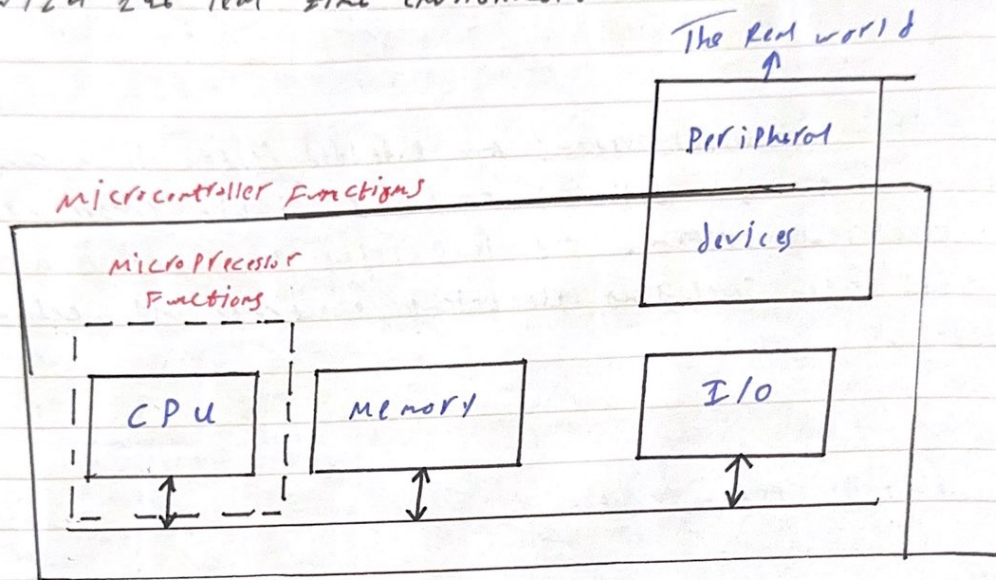 The Real world
Peripheral
devices
Microcontroller Functions
Microprocessor
Functions
CPU
Memory
I/O